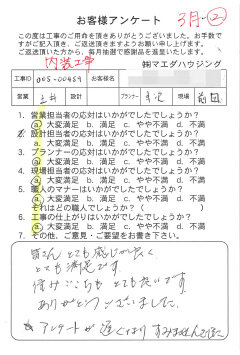 お客様アンケート
3月-②
この度は工事のご用命を頂きありがとうございました。お手数で
すがご記入頂き、ご返送頂きますようお願い申し上げます。
ご返送頂いた方から、毎月抽選で感謝品を進呈いたします。
内装工事
㈱マエダハウジング
工事ID 005-00459 お客様名
営業 設計 プランナー 現場
1. 営業担当者の応対はいかがでしたでしょうか?
a. 大変満足 b. 満足 c. やや不満 d. 不満
2. 設計担当者の応対はいかがでしたでしょうか?
a. 大変満足 b. 満足 c. やや不満 d. 不満
3. プランナーの応対はいかがでしたでしょうか?
a. 大変満足 b. 満足 c. やや不満 d. 不満
4. 現場担当者の応対はいかがでしたでしょうか?
a. 大変満足 b. 満足 c. やや不満 d. 不満
5. 職人のマナーはいかがでしたでしょうか?
a. 大変満足 b. 満足 c. やや不満 d. 不満
それはどの職人でしょうか? ( )
6. 工事の仕上がりはいかがでしたでしょうか?
a. 大変満足 b. 満足 c. やや不満 d. 不満
7. その他、ご意見・ご要望をお書き下さい。
皆さん とても感じが良く
とても満足です
とても良いです
ありがとうございました。
アンケートが遅くなり すみませんでした